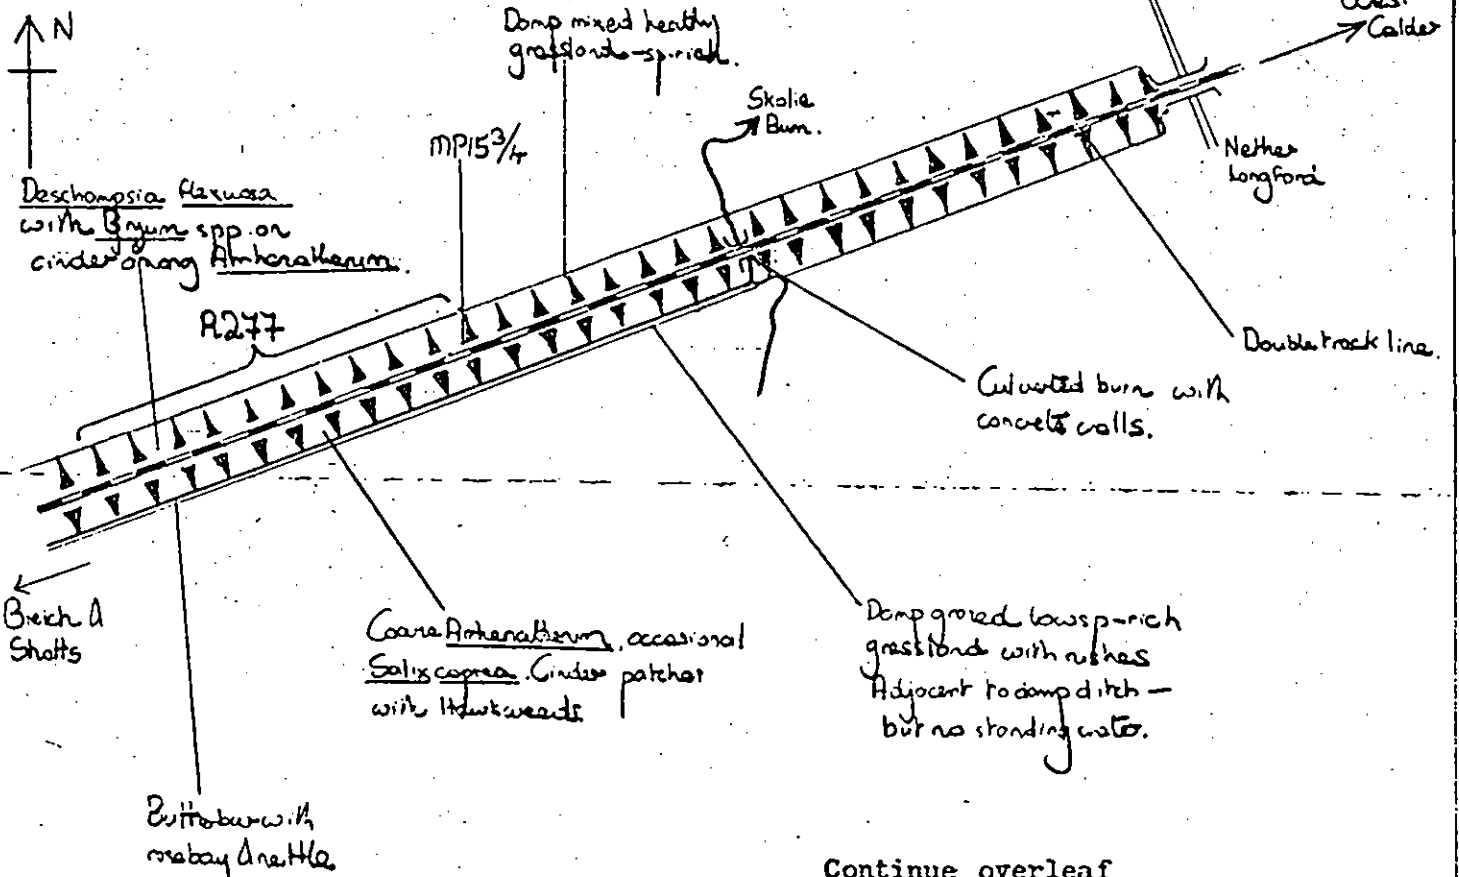 N
Damp mixed heathy
grassland - sp. rich.
West
Calder
Skolie
Burn.
MP15 3/4
Nether
Longford
Deschampsia flexuosa
with Bryum spp. on
cinder among Arrhenatherum.
R277
Double track line.
Culverted burn with
concrete walls.
Breich &
Shotts
Coarse Arrhenatherum, occasional
Salix caprea. Cinder patches
with Hawkweeds
Damp grazed low sp-rich
grassland with rushes
Adjacent to damp ditch -
but no standing water.
Butterbur with
rosebay & nettle
Continue overleaf